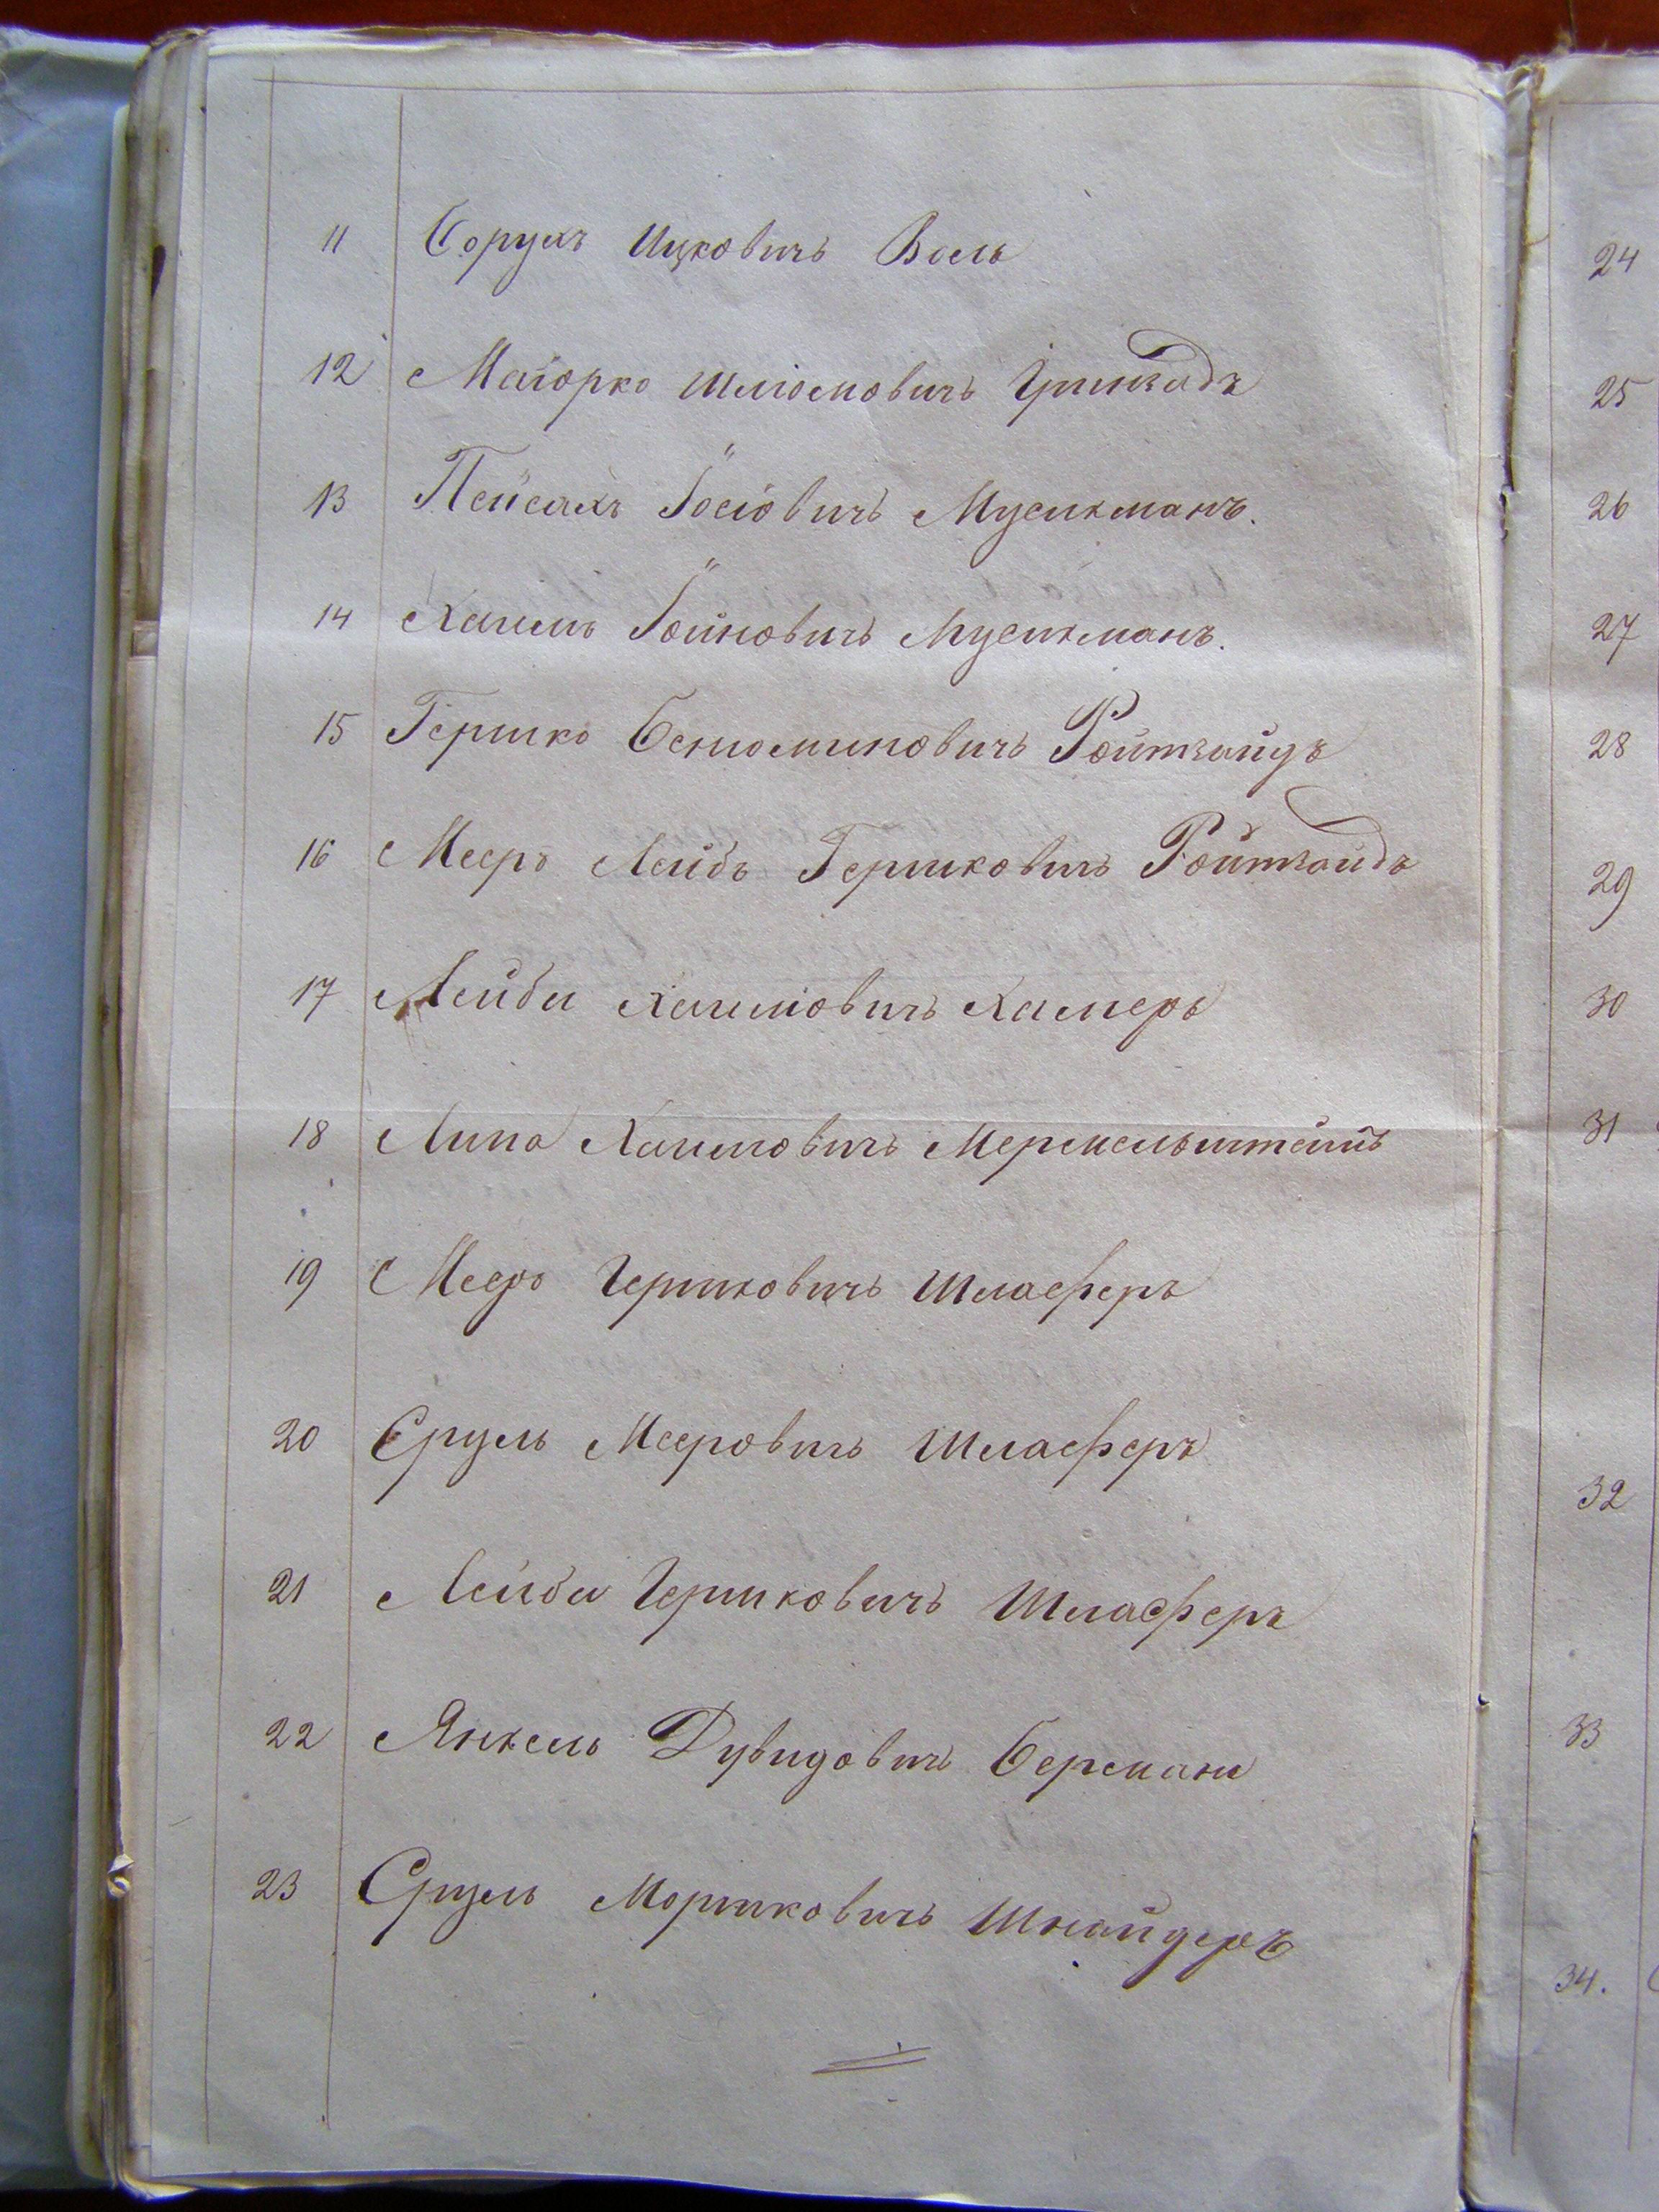 11 Борухъ Ицковичъ Воль
12 Маіорко Шліомовичъ Гринвадъ
13 Пейсахъ Іосіовичъ Мусикманъ.
14 Хаимъ Іойновичъ Мусикманъ.
15 Гершко Беніоминовичъ Ройтзайдъ
16 Мееръ Лейбъ Гершковичъ Ройтзайдъ
17 Лейба Хаимовичъ Хамеръ
18 Липа Хаимовичъ Мермельштейнъ
19 Мееръ Гершковичъ Шлаеферъ
20 Сруль Мееровичъ Шлаеферъ
21 Лейба Гершковичъ Шлаеферъ
22 Янкель Дувидовичъ Берманъ
23 Сруль Моршковичъ Шнайдеръ
24
25
26
27
28
29
30
31
32
33
34.